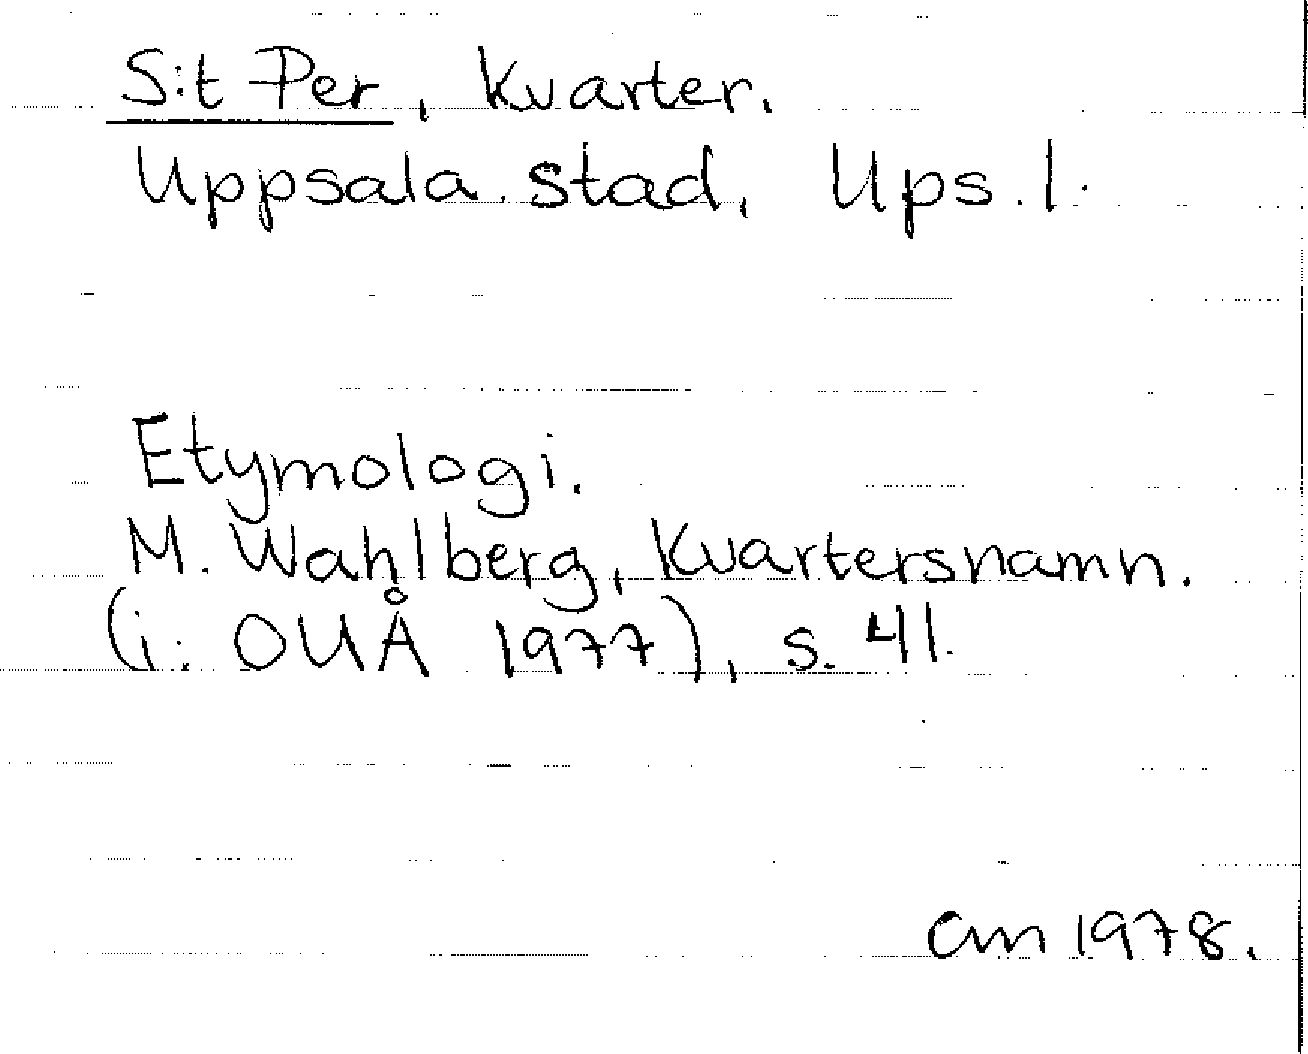 S:t Per, Kvarter.
Uppsala stad, Ups. l.
Etymologi.
M. Wahlberg, Kvartersnamn.
(i: OUÅ 1977), s. 41.
CM 1978.